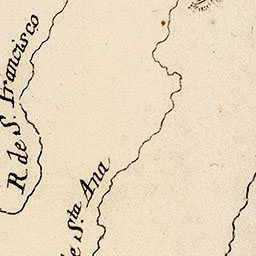 R. de S. Francisco
de S.ta Ana